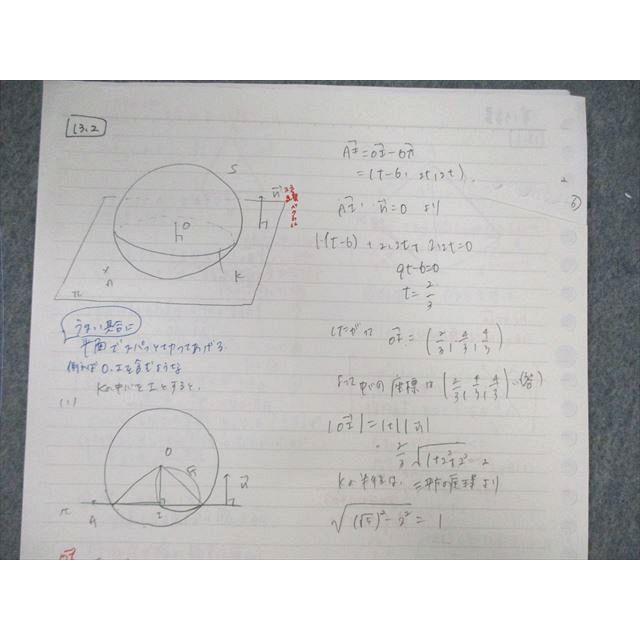 13.2
S
n
O
K
A
π
うまい具合に
平面でスパッと切ってあげる
例えば O, I を含むような
Kの中心を I とすると、
(1)
O
√5
n
π
A
I
AI = OI - OA
= (t-6, 2t, 2t).
AI・n = 0 より
1・(t-6) + 2・2t + 2・2t = 0
9t-6=0
t = 2/3
したがって OI = (2/3, 4/3, 4/3)
よって中心の座標は (2/3, 4/3, 4/3) (答)
|OI| = |t||n|
= 2/3 √(1+2²+2²) = 2
Kの半径は、三平方の定理より
√((√5)² - 2²) = 1